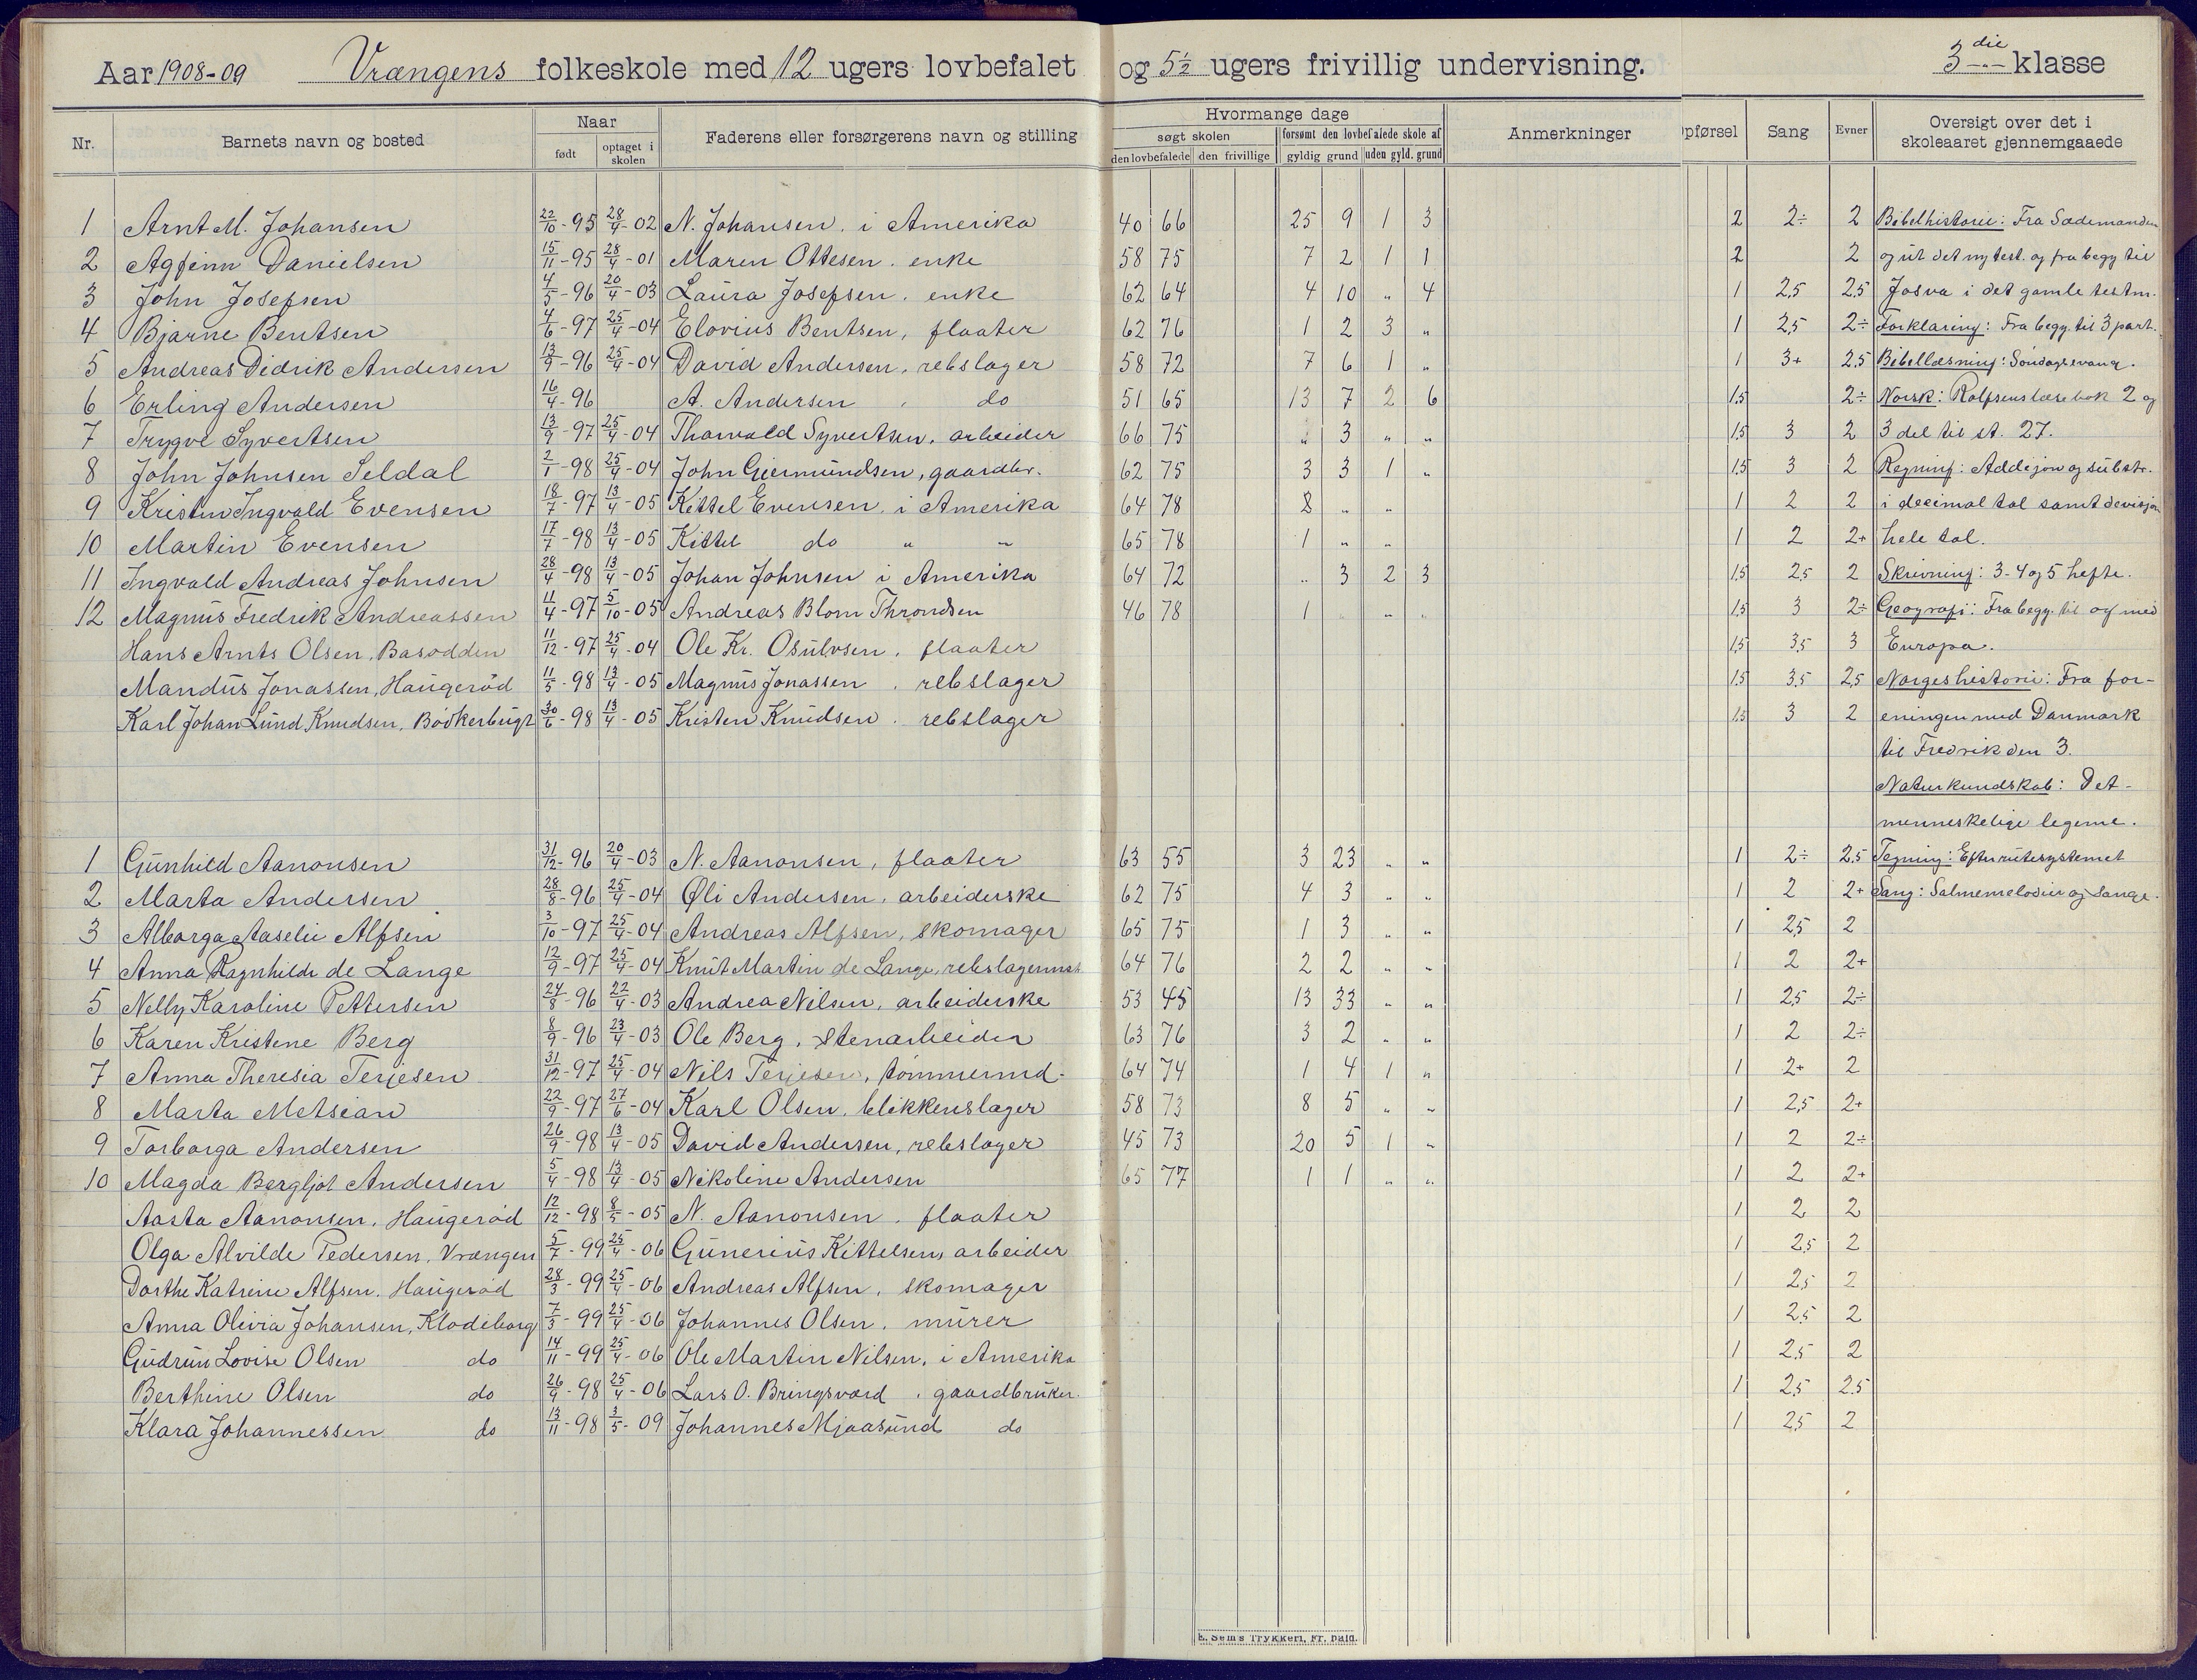 Aar 1908-09 Vrængens folkeskole med 12 ugers lovbefalet og 5½ ugers frivillig undervisning. 3die klasse
Nr. Barnets navn og bosted Naar født optaget i skolen Faderens eller forsørgerens navn og stilling Hvormange dage søgt skolen den lovbefalede den frivillige forsømt den lovbefalede skole af gyldig grund uden gyld. grund Anmerkninger pførsel Sang Evner Oversigt over det i skoleaaret gjennemgaaede
1 Arnt M. Johansen 22/10-95 28/4-02 N. Johansen. i Amerika 40 66 25 9 1 3 2 2÷ 2 Bibelhistorie: Fra Sædemanden
2 Agfinn Danielsen 15/11-95 28/4-01 Maren Ottesen. enke 58 75 7 2 1 1 2 2 og ut det ny test. og fra begg til
3 John Josefsen 4/5-96 20/4-03 Laura Josefsen. enke 62 64 4 10 " 4 1 2,5 2,5 Josva i det gamle testm.
4 Bjarne Bentsen 4/6-97 25/4-04 Elovius Bentsen, flaater 62 76 1 2 3 " 1 2,5 2÷ Forklaring: Fra begg. til 3 part.
5 Andreas Didrik Andersen 13/9-96 25/4-04 David Andersen, rebslager 58 72 7 6 1 " 1 3+ 2,5 Bibellæsning: Søndagsevang.
6 Erling Andersen 16/4-96 A. Andersen . do 51 65 13 7 2 6 1,5 2÷ Norsk: Rolfsens læsebok 2 og
7 Trygve Syvertsen 13/9-97 25/4-04 Thorvald Syvertsen, arbeider 66 75 " 3 " " 1,5 3 2 3 del til st. 27.
8 John Johnsen Seldal 2/1-98 25/4-04 John Giermundsen, gaardbr. 62 75 3 3 1 " 1,5 3 2 Regning: Addisjon og substr.
9 Kristen Ingvald Evensen 18/7-97 13/4-05 Kittel Evensen, i Amerika 64 78 8 " " 1 2 2 i decimal tal samt devisjon
10 Martin Evensen 17/7-98 13/4-05 Kittel do " " 65 78 1 " " 1 2 2+ hele tal.
11 Ingvald Andreas Johnsen 28/4-98 13/4-05 Johan Johnsen i Amerika 64 72 " 3 2 3 1,5 2,5 2 Skrivning: 3-4 og 5 hefte.
12 Magnus Fredrik Andreassen 11/4-97 5/10-05 Andreas Blom Throndsen 46 78 1 " " " 1,5 3 2÷ Geografi: Fra begg. til og med
Hans Arnts Olsen, Basodden 11/12-97 25/4-04 Ole Kr. Osulvsen. flaater 1,5 3,5 3 Europa.
Mandus Jonassen, Haugerød 11/5-98 13/4-05 Magnus Jonassen . rebslager 1,5 3,5 2,5 Norgeshistorie: Fra for-
Karl Johan Lund Knudsen, Bødkerbugt 30/6-98 13/4-05 Kristen Knudsen. rebslager 1,5 3 2 eningen med Danmark
til Fredrik den 3.
Naturkundskab: Det
menneskelige legeme.
1 Gunhild Aanonsen 31/12-96 20/4-03 N. Aanonsen, flaater 63 55 3 23 " " 1 2÷ 2,5 Tegning: Efter rutesystemet
2 Marta Andersen 28/8-96 25/4-04 Øli Andersen, arbeiderske 62 75 4 3 " " 1 2 2+ Sang: Salmemelodier og Sange.
3 Alborga Aaselie Alfsen 3/10-97 25/4-04 Andreas Alfsen, skomager 65 75 1 3 " " 1 2,5 2
4 Anna Ragnhilde de Lange 12/9-97 25/4-04 Knut Martin de Lange, rebslagermst 64 76 2 2 " " 1 2 2+
5 Nelly Karoline Pettersen 24/8-96 22/4-03 Andrea Nilsen, arbeiderske 53 45 13 33 " " 1 2,5 2÷
6 Karen Kristene Berg 8/9-96 23/4-03 Ole Berg, stenarbeider 63 76 3 2 " " 1 2 2÷
7 Anna Theresia Terjesen 31/12-97 25/4-04 Nils Terjesen, tømmermd. 64 74 1 4 1 " 1 2+ 2
8 Marta Metsian 22/9-97 27/6-04 Karl Olsen. blikkenslager 58 73 8 5 " " 1 2,5 2+
9 Torborga Andersen 26/9-98 13/4-05 David Andersen, rebslager 45 73 20 5 1 " 1 2 2÷
10 Magda Bergljot Andersen 5/4-98 13/4-05 Nikoline Andersen 65 77 1 1 " " 1 2 2+
Aasta Aanonsen, Haugerød 12/12-98 8/5-05 N. Aanonsen. flaater 1 2 2
Olga Alvilde Pedersen, Vrængen 5/7-99 25/4-06 Gunerius Kittelsen, arbeider 1 2,5 2
Dorthe Katrine Alfsen. Haugerød 28/3-99 25/4-06 Andreas Alfsen, skomager 1 2,5 2
Anna Olivia Johansen, Klodeborg 7/3-99 25/4-06 Johannes Olsen. murer 1 2,5 2
Gudrun Lovise Olsen do 14/11-99 25/4-06 Ole Martin Nilsen, i Amerika 1 2,5 2
Berthine Olsen do 26/9-98 25/4-06 Lars O. Bringsværd . gaardbruker. 1 2,5 2,5
Klara Johannessen do 13/11-98 3/5-09 Johannes Mjaasund do 1 2,5 2
E. Sem's Trykkeri, Fr. hald.